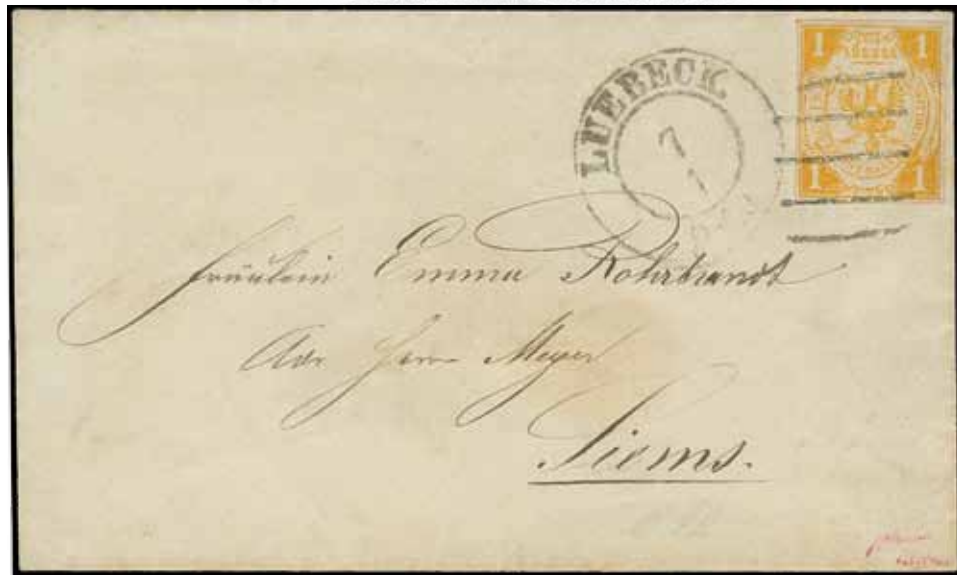 1 1
LUEBECK
7
1
1 1
Fräulein Emma Rohrbrandt
Adr Herrn Meyer
Siems.